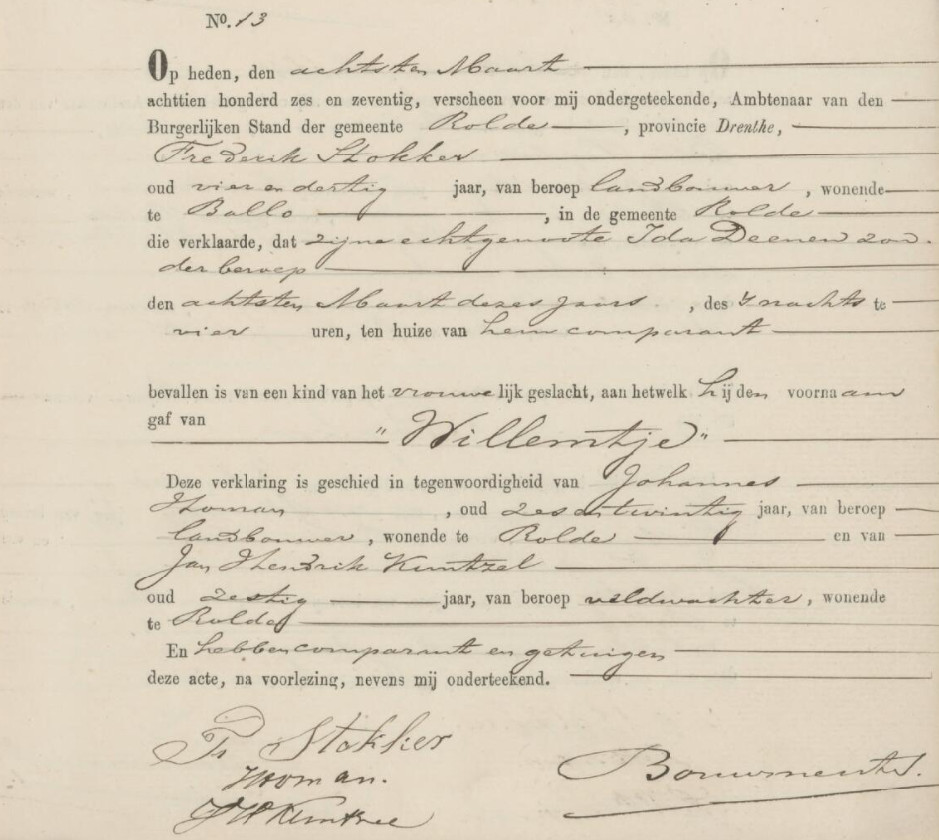 No. 13
Op heden, den achtsten Maart
achttien honderd zes en zeventig, verscheen voor mij ondergeteekende, Ambtenaar van den
Burgerlijken Stand der gemeente Rolde, provincie Drenthe,
Frederik Stokker
oud vier en dertig jaar, van beroep landbouwer, wonende
te Ballo, in de gemeente Rolde
die verklaarde, dat zijne echtgenoote Ida Deenen zon-
der beroep
den achtsten Maart dezes jaars, des 's nachts te
vier uren, ten huize van hem comparant
bevallen is van een kind van het vrouwelijk geslacht, aan hetwelk hij den voornaam
gaf van "Willemtje"
Deze verklaring is geschied in tegenwoordigheid van Johannes
Homan, oud zes en twintig jaar, van beroep
landbouwer, wonende te Rolde en van
Jan Hendrik Kuntzel
oud zestig jaar, van beroep veldwachter, wonende
te Rolde
En hebben comparant en getuigen
deze acte, na voorlezing, nevens mij onderteekend.
Fr Stokker
Homan.
JH